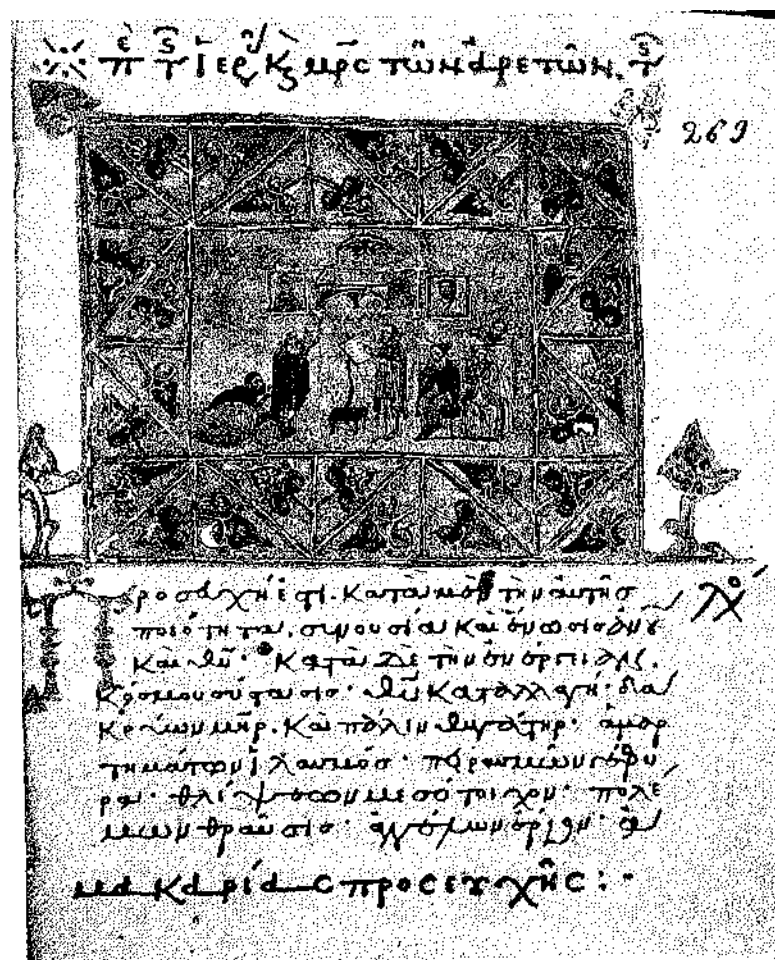 π τ ἱερ κ μρς τῶν ἀρετῶν. τ
269
Προσευχή ἐστι. κατὰ μὲν τὴν αὐτῆς
ποιότητα, συνουσία καὶ ἕνωσις ἀνου
καὶ θυ· κατὰ δὲ τὴν ἐνέργειαν,
κόσμου σύστασις· θυ καταλλαγή· δα
κρύων μηρ. καὶ πάλιν θυγάτηρ· ἁμαρ
τημάτων ἱλασμός· πειρασμῶν γέφυ
ρα· θλίψεων μεσότοιχον· πολέ
μων θραῦσις· ἀγγέλων ἔργον·
μακαρίας προσευχῆς: